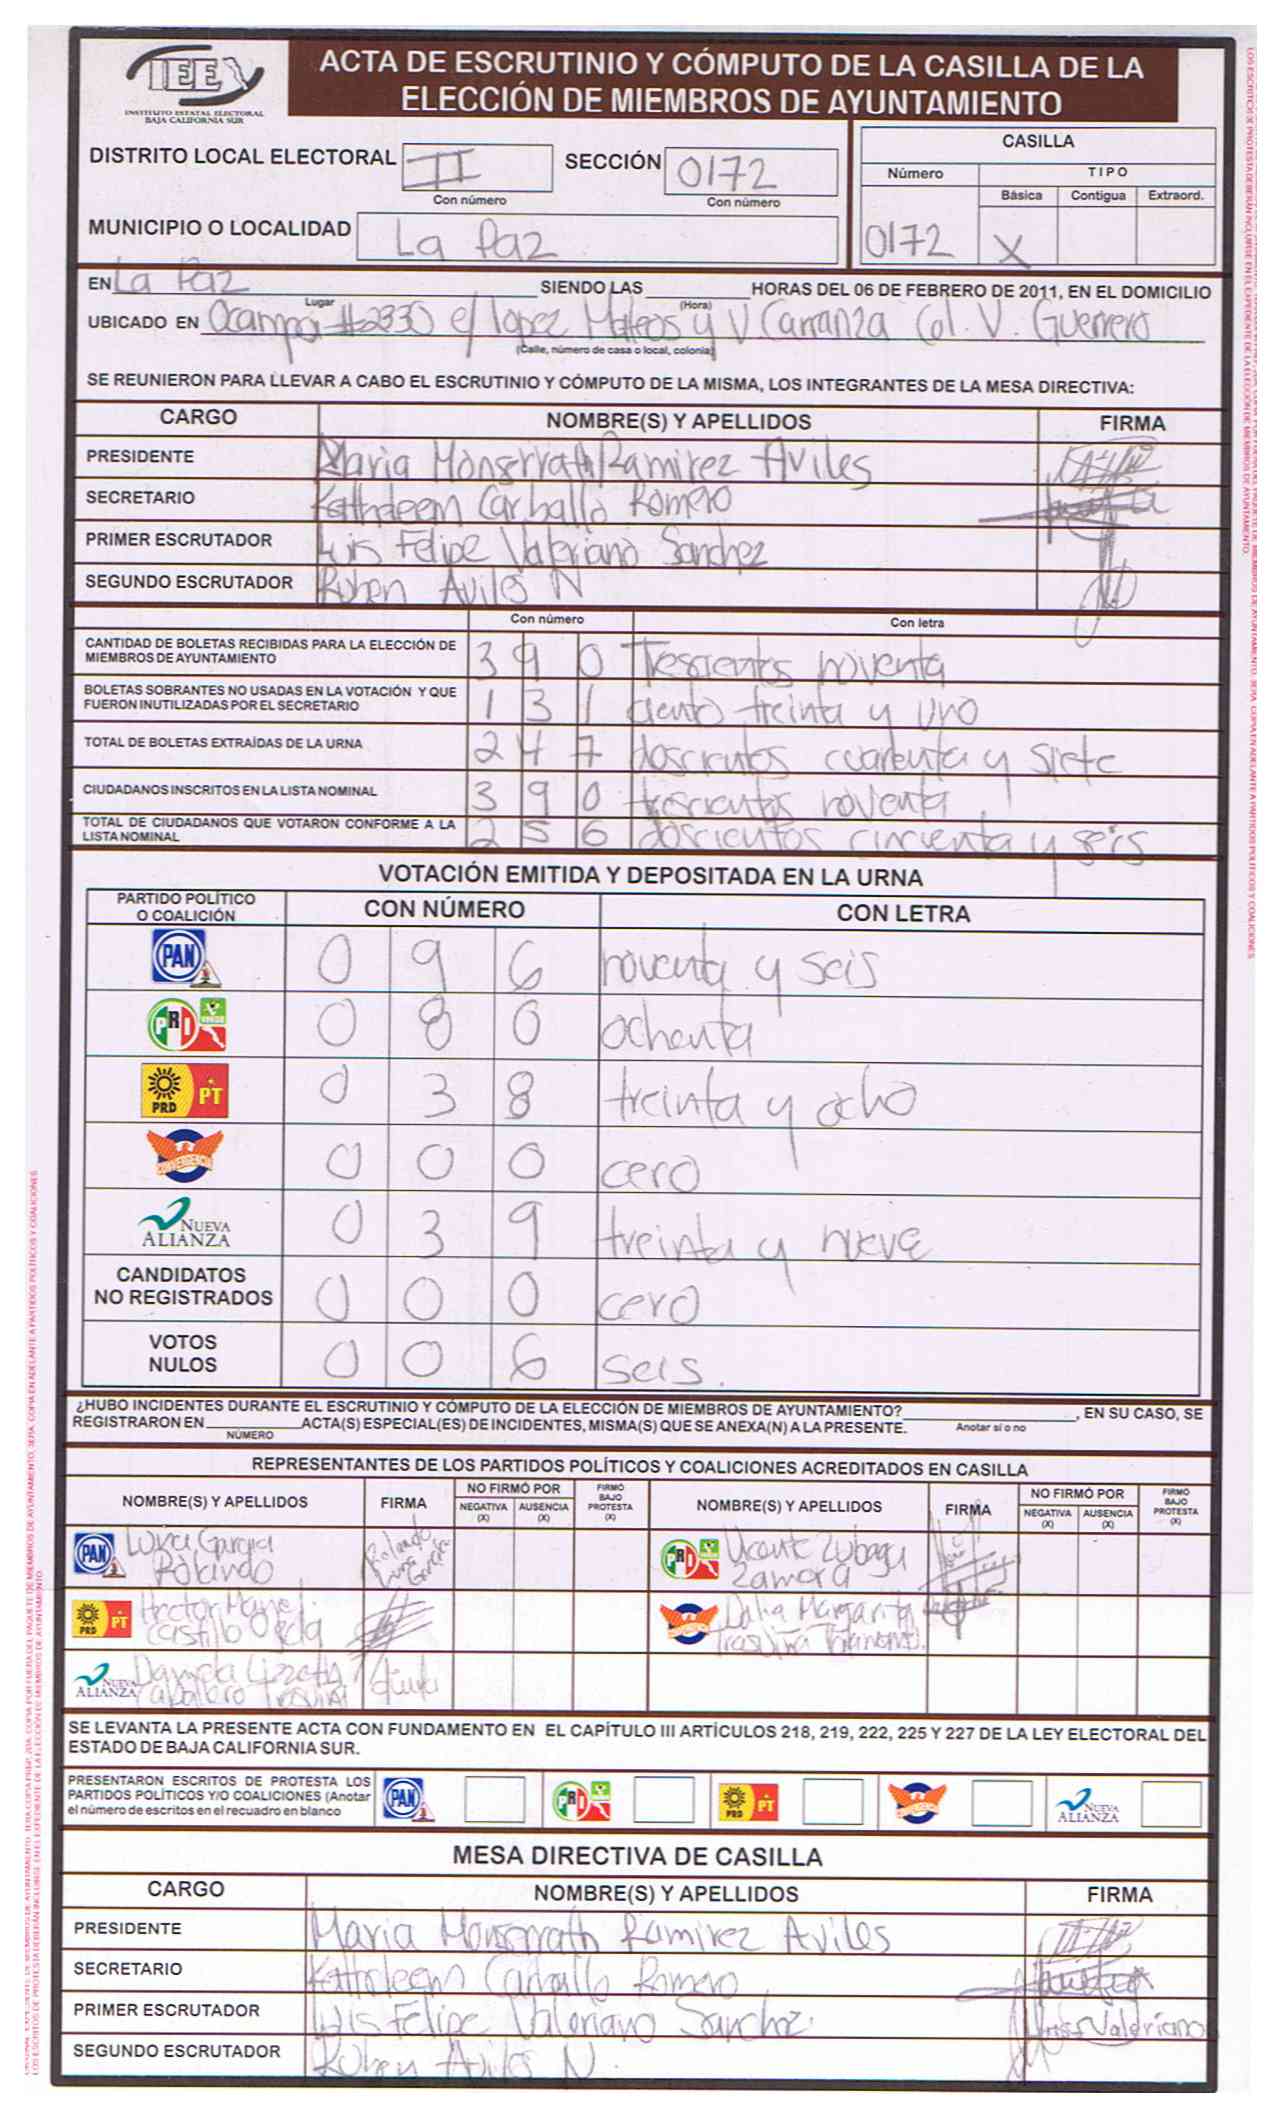 IEE
INSTITUTO ESTATAL ELECTORAL
BAJA CALIFORNIA SUR
ACTA DE ESCRUTINIO Y CÓMPUTO DE LA CASILLA DE LA
ELECCIÓN DE MIEMBROS DE AYUNTAMIENTO
DISTRITO LOCAL ELECTORAL II SECCIÓN 0172
Con número Con número
MUNICIPIO O LOCALIDAD La Paz
CASILLA
Número TIPO
Básica Contigua Extraord.
0172 X
EN La Paz SIENDO LAS HORAS DEL 06 DE FEBRERO DE 2011, EN EL DOMICILIO
Lugar (Hora)
UBICADO EN Ocampo #2330 e/ lopez Mateos y V. Carranza Col. V. Guerrero
(Calle, número de casa o local, colonia)
SE REUNIERON PARA LLEVAR A CABO EL ESCRUTINIO Y CÓMPUTO DE LA MISMA, LOS INTEGRANTES DE LA MESA DIRECTIVA:
CARGO NOMBRE(S) Y APELLIDOS FIRMA
PRESIDENTE Maria Monserrath Ramirez Aviles
SECRETARIO Kathaleen Carballo Romero
PRIMER ESCRUTADOR Luis Felipe Valeriano Sanchez
SEGUNDO ESCRUTADOR Ruben Aviles N
Con número Con letra
CANTIDAD DE BOLETAS RECIBIDAS PARA LA ELECCIÓN DE
MIEMBROS DE AYUNTAMIENTO 3 9 0 trescientos noventa
BOLETAS SOBRANTES NO USADAS EN LA VOTACIÓN Y QUE
FUERON INUTILIZADAS POR EL SECRETARIO 1 3 1 ciento treinta y uno
TOTAL DE BOLETAS EXTRAÍDAS DE LA URNA 2 4 7 doscientos cuarenta y siete
CIUDADANOS INSCRITOS EN LA LISTA NOMINAL 3 9 0 trescientos noventa
TOTAL DE CIUDADANOS QUE VOTARON CONFORME A LA
LISTA NOMINAL 2 5 6 doscientos cincuenta y seis
VOTACIÓN EMITIDA Y DEPOSITADA EN LA URNA
PARTIDO POLÍTICO
O COALICIÓN CON NÚMERO CON LETRA
PAN 0 9 6 noventa y seis
PRI VERDE 0 8 0 ochenta
PRD PT 0 3 8 treinta y ocho
CONVERGENCIA 0 0 0 cero
NUEVA ALIANZA 0 3 9 treinta y nueve
CANDIDATOS
NO REGISTRADOS 0 0 0 cero
VOTOS
NULOS 0 0 6 seis.
¿HUBO INCIDENTES DURANTE EL ESCRUTINIO Y CÓMPUTO DE LA ELECCIÓN DE MIEMBROS DE AYUNTAMIENTO? , EN SU CASO, SE
REGISTRARON EN ACTA(S) ESPECIAL(ES) DE INCIDENTES, MISMA(S) QUE SE ANEXA(N) A LA PRESENTE. Anotar sí o no
NÚMERO
REPRESENTANTES DE LOS PARTIDOS POLÍTICOS Y COALICIONES ACREDITADOS EN CASILLA
NOMBRE(S) Y APELLIDOS FIRMA NO FIRMÓ POR NEGATIVA (X) AUSENCIA (X) FIRMÓ BAJO PROTESTA (X) NOMBRE(S) Y APELLIDOS FIRMA NO FIRMÓ POR NEGATIVA (X) AUSENCIA (X) FIRMÓ BAJO PROTESTA (X)
PAN Luna Garcia Rolando Rolando Luna Garcia PRI VERDE Vicente Zamora
PRD PT Hector Castillo Ojeda Dalia Margarita
NUEVA ALIANZA Daniela Lizzeth Caballero
SE LEVANTA LA PRESENTE ACTA CON FUNDAMENTO EN EL CAPÍTULO III ARTÍCULOS 218, 219, 222, 225 Y 227 DE LA LEY ELECTORAL DEL
ESTADO DE BAJA CALIFORNIA SUR.
PRESENTARON ESCRITOS DE PROTESTA LOS
PARTIDOS POLÍTICOS Y/O COALICIONES (Anotar
el número de escritos en el recuadro en blanco
PAN PRI PRD PT NUEVA ALIANZA
MESA DIRECTIVA DE CASILLA
CARGO NOMBRE(S) Y APELLIDOS FIRMA
PRESIDENTE Maria Monserrath Ramirez Aviles
SECRETARIO Kathaleen Carballo Romero
PRIMER ESCRUTADOR Luis Felipe Valeriano Sanchez Luis Valeriano
SEGUNDO ESCRUTADOR Ruben Aviles N.